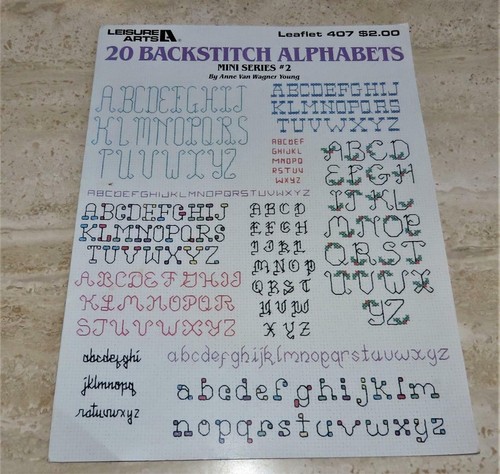 LEISURE
ARTS
Leaflet 407 $2.00
20 BACKSTITCH ALPHABETS
MINI SERIES #2
By Anne Van Wagner Young
ABCDEFGHIJ
KLMNOPQRS
TUVWXYZ
ABCDEFGHIJ
KLMNOPQRS
TUVWXYZ
ABCDEF
GHIJKL
MNOPQ
RSTUV
WXYZ
ABCD
EFGH
IJKL
MNOP
QRST
UVWX
YZ
ABCDEFGHIJKLMNOPQRSTUVWXYZ
ABCDEFGHIJ
KLMNOPQRS
TUVWXYZ
ABCD
EFGH
IJKL
MNOP
QRST
UVW
XYZ
ABCDEFGHIJ
KLMNOPQR
STUVWXYZ
abcdefghi
jklmnopq
rstuvwxyz
abcdefghijklmnopqrstuvwxyz
abcdefghijklm
nopqrstuvwxyz